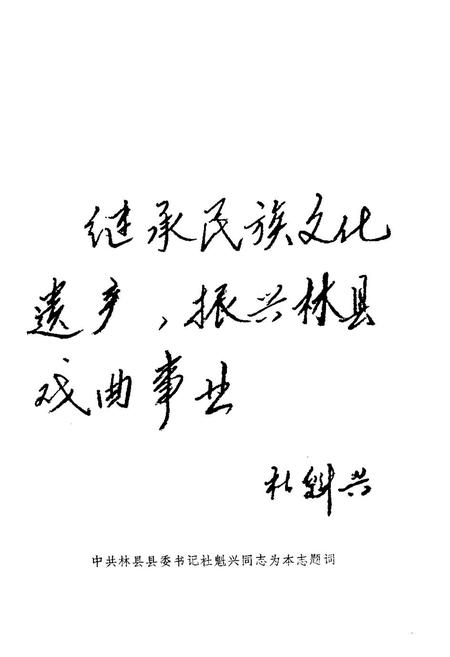 继承民族文化
遗产，振兴林县
戏曲事业
杜魁兴
中共林县县委书记杜魁兴同志为本志题词